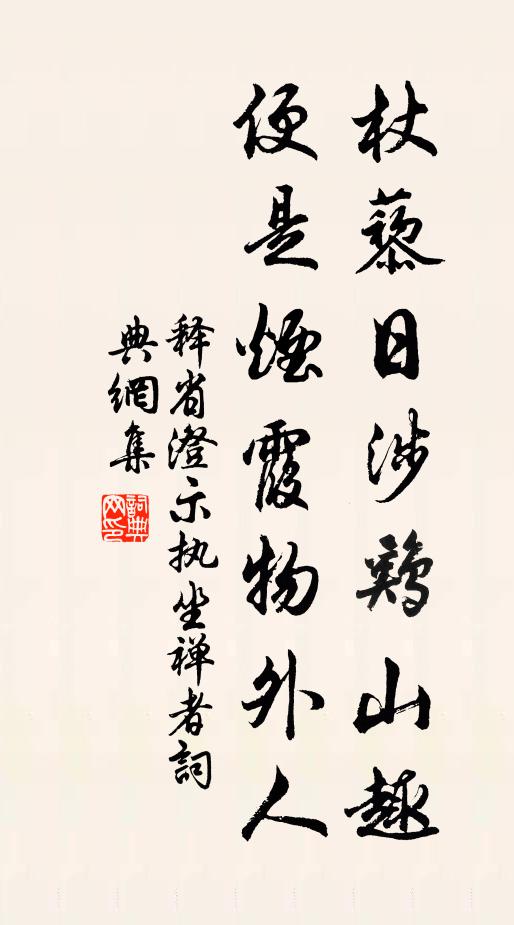 杖藜日涉鷄山趣
便是煙霞物外人
释省澄示执坐禅者詞
典網集
詞典网印